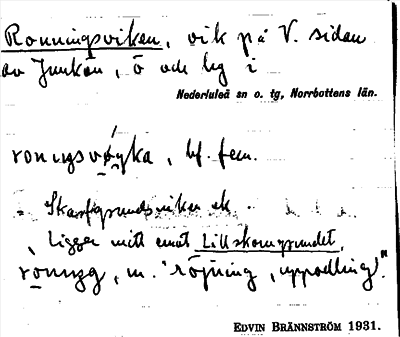 Ronningsviken, vik på V. sidan
av Junkön, ö och hg i
Nederluleå sn o. tg, Norrbottens län.
ronıŋsvøyka, bf. fem.
Skarfgrundsviken ek.
Ligger mitt emot Lillskorngrundet,
ronıŋg, m. "röjning, uppodling".
EDVIN BRÄNNSTRÖM 1931.